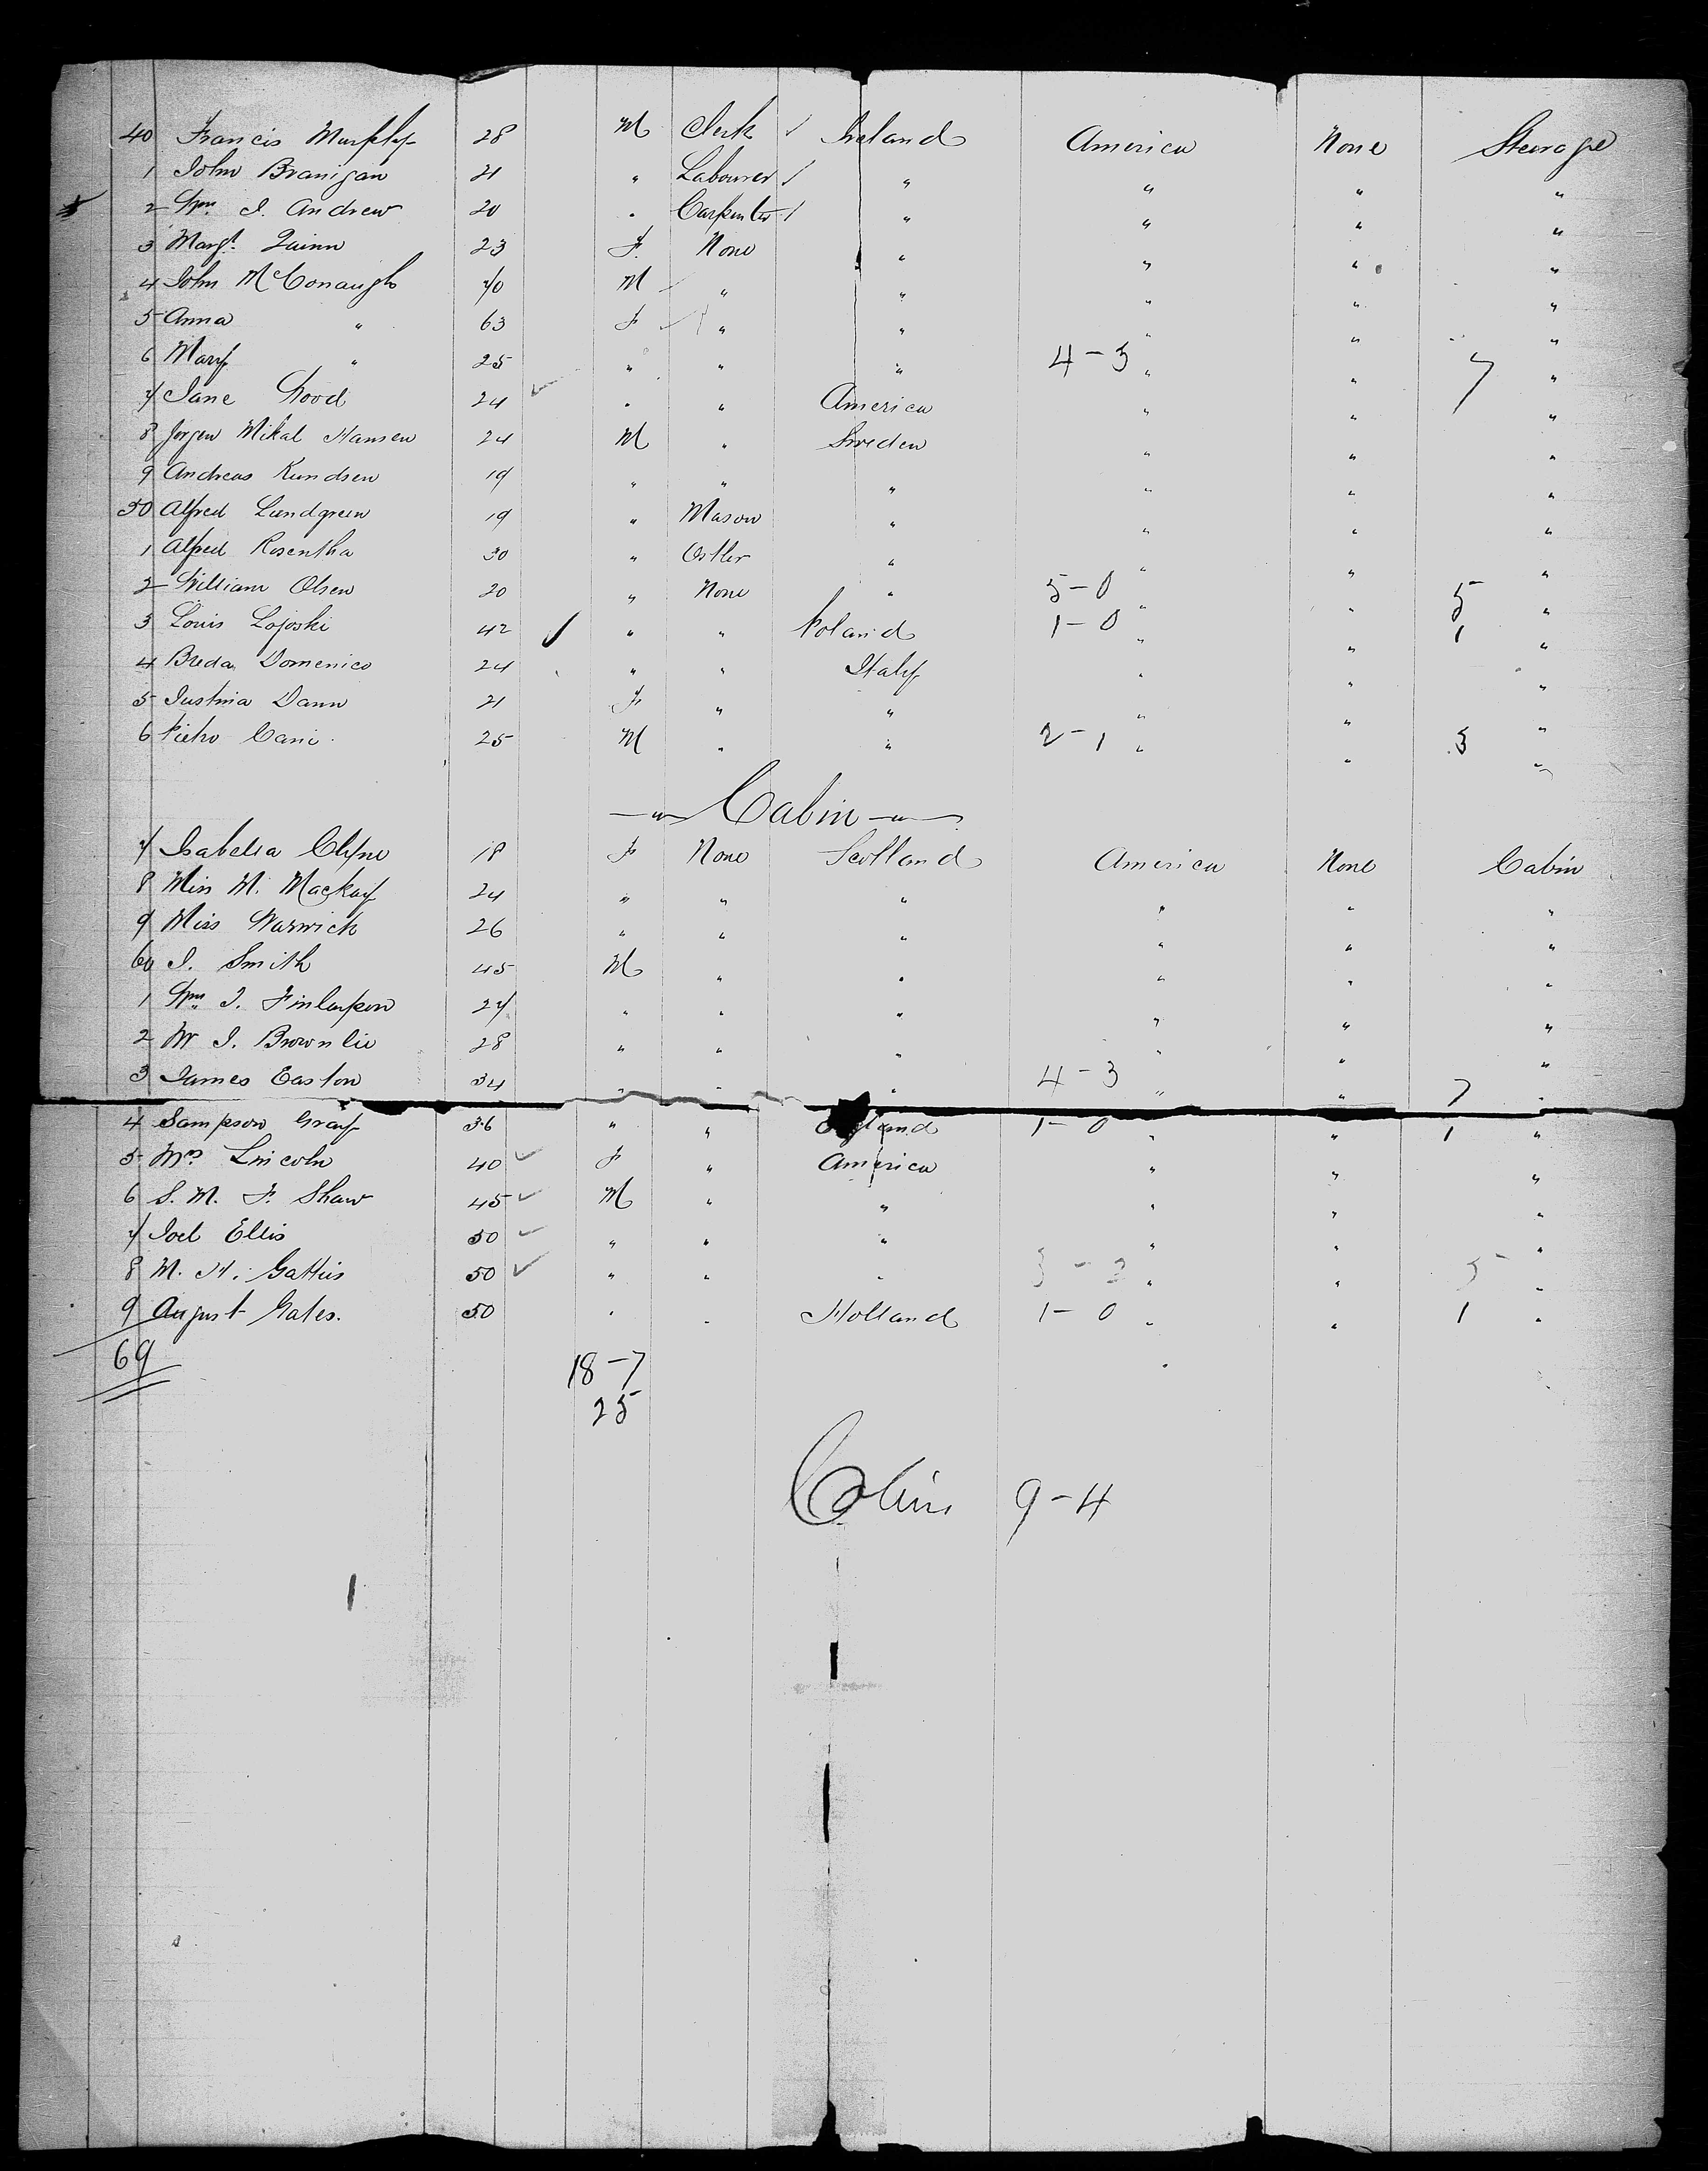 40 Francis Murphy 28 M Clerk Ireland America None Steerage
1 John Branigan 21 " Labourer " " " "
2 Wm. J. Andrew 20 " Carpenter " " " "
3 Margt. Quinn 23 F. None " " " "
4 John McConaugh 70 M " " " " "
5 Anna " 63 F " " " " "
6 Mary " 25 " " " 4-3 " " 7 "
7 Jane Wood 24 " " America " " "
8 Jorgen Mikal Hansen 24 M " Sweden " " "
9 Andreas Kundsen 19 " " " " " "
50 Alfred Lundgreen 19 " Mason " " " "
1 Alfred Rosentha 30 " Ostler " " " "
2 William Olsen 20 " None " 5-0 " " 5 "
3 Louis Lojoski 42 " " Poland 1-0 " " 1 "
4 Breda Domenico 24 " " Italy " " "
5 Justina Dann 21 F " " " " "
6 Pietro Cani 25 M " " 2-1 " " 3 "
Cabin
7 Isabella Clyne 18 F None Scotland America None Cabin
8 Miss M. Mackay 24 " " " " " "
9 Miss Warwick 26 " " " " " "
60 J. Smith 45 M " " " " "
1 Wm J. Finlayson 27 " " " " " "
2 W J. Brownlie 28 " " " " " "
3 James Easton 34 " " " 4-3 " " 7 "
4 Sampson Gray 36 " " England 1-0 " " 1 "
5 Mrs Lincoln 40 F " America " " "
6 S. M. F. Shaw 45 M " " " " "
7 Joel Ellis 50 " " " " " "
8 M. H. Gattius 50 " " " 3-2 " " 5 "
9 August Gates. 50 " " Holland 1-0 " " 1 "
69 18-7
25
9-4